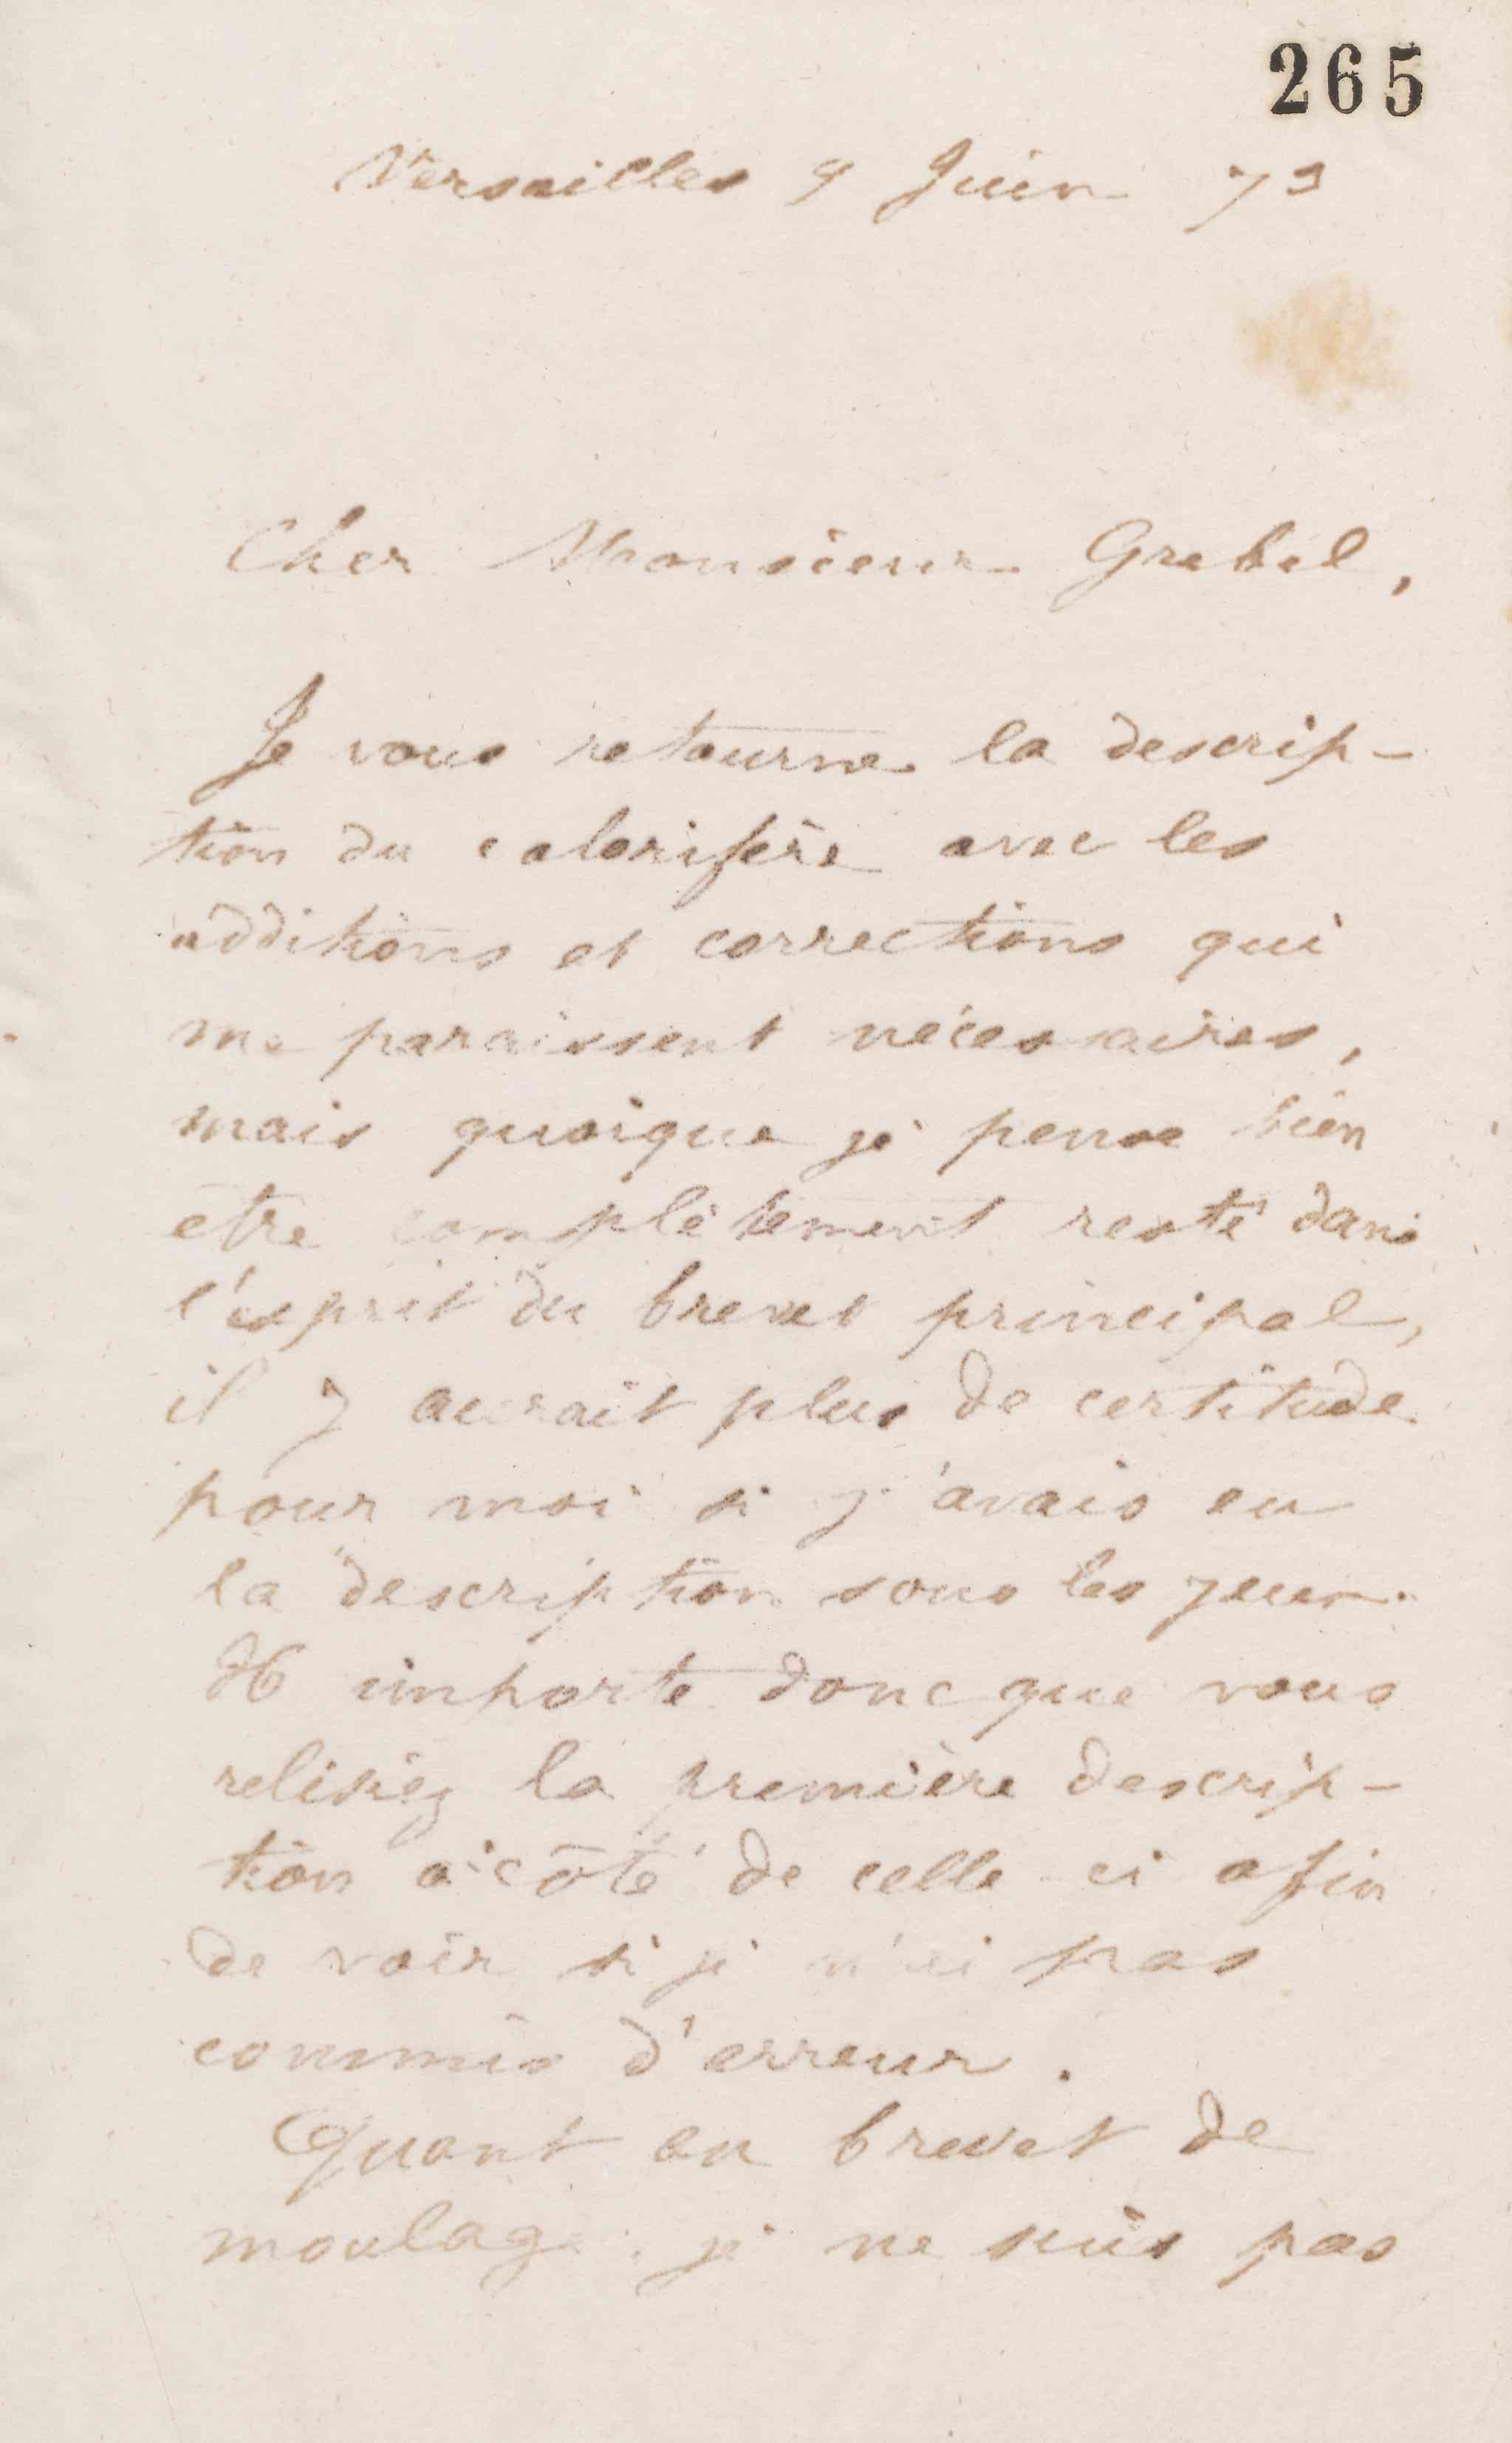 265
Versailles 9 Juin 79
Cher Monsieur Grebel,
Je vous retourne la descrip-
tion du calorifère avec les
additions et corrections qui
me paraissent nécessaires,
mais quoique je pense bien
être complètement resté dans
l'esprit du brevet principal,
il y aurait plus de certitude
pour moi si j'avais eu
la description sous les yeux.
Il importe donc que vous
relisiez la première descrip-
tion à côté de celle-ci afin
de voir si je n'ai pas
commis d'erreur.
Quant au brevet de
moulage, je ne suis pas